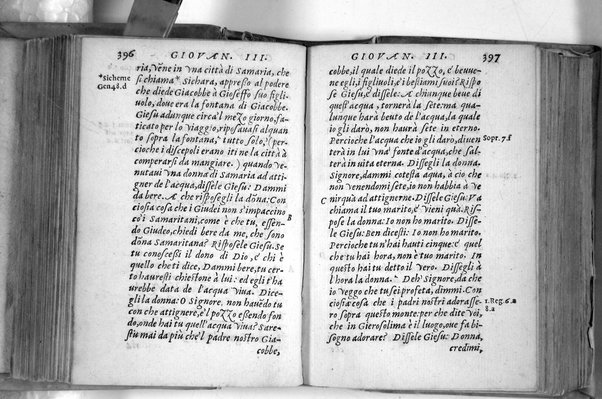 396 GIOVAN. III.
*Sicheme
Gen 48. d
ria, vēne in vna città di Samaria, che
si chiama* Sichara, appresso al podere
che diede Giacobbe à Gioseffo suo figli
uolo, doue era la fontana di Giacobbe.
Giesu adunque circa'l mezo giorno, fa
ticato per lo viaggio, riposauasi alquan
to sopra la fontana, tutto solo, (per
cioche i discepoli erano iti ne la città à
comperarsi da mangiare.) quando ve
nutaui vna donna di Samaria ad atti
gner de l'acqua, dissele Giesu: Dammi
da bere. A che rispose gli la dōna: Con
ciosia cosa che i Giudei non s'impaccino
B
co'i Samaritani, come è che tu, essen
do Giudeo, chiedi bere da me, che sono
dōna Samaritana? Rispose le Giesu. Se
tu conoscessi il dono di Dio, e chi è
quello che ti dice, Dammi bere, tu cer
to hauresti chiestone à lui: ed egli t'ha
urebbe data de l'acqua viua. Dice
gli la donna: O Signore, non hauēdo tu
con che attignere, e'l pozzo essendo fon
do, onde hai tu quell'acqua viua? Sare
sti mai da più che'l padre nostro Gia-
cobbe,
GIOVAN. III. 397
cobbe, il quale diede il pozzo, e beuue
ne egli, i figliuoli, e i bestiami suoi? Rispo
se Giesu, e dissele: A chiunque beue di
quest'acqua, tornerà la sete: ma qua
lunque harà beuto de l'acqua, la quale
io gli darò, non haurà sete in eterno.
Percioche l'acqua che io gli darò, diuen
Sopr. 7. f
terà in lui vna fonte d'acqua, che sal
terà in vita eterna. Dissegli la donna.
Signore, dammi cotesta aqua, à cio che
non venendomi sete, io non habbia à ve
C
nir quà ad attignerne. Dissele Giesu: Va
chiama il tuo marito, e vieni quà. Ris
pose la donna: Io non ho marito. Disse
le Giesu: Ben dicesti: Io non ho marito.
Percioche tu n'hai hauti cinque: e quel
che tu hai hora, non è tuo marito. In
questo hai tu detto il vero. Dissegli à
l'hora la donna. Deh Signore, da che
io veggo che tu sei profeta, dimmi: Con
ciosia cosa che i padri nostri adorasse-
1. Reg. 6. a
ro sopra questo monte: per che dite voi,
8. a
che in Gierosolima è il luogo, oue fa bi-
sogno adorare? Dissele Giesu: Donna,
credimi,